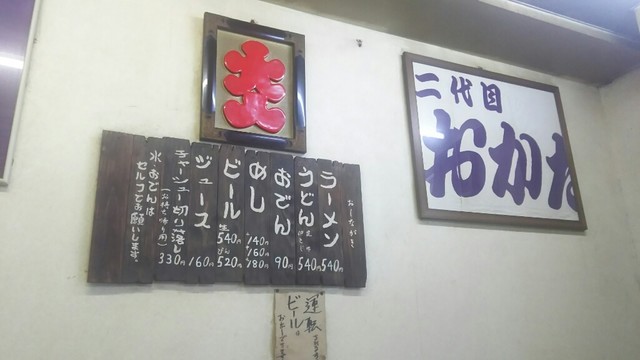 大入
二代目
おかだ
おしながき
ラーメン 540円
うどん 540円
おでん 90円
めし 140円 160円 180円
ビール 生540円 びん520円
ジュース 160円
チャーシュー切り落し (お持ち帰り用) 330円
水、おでんは
セルフでお願いします。
運転
ビール